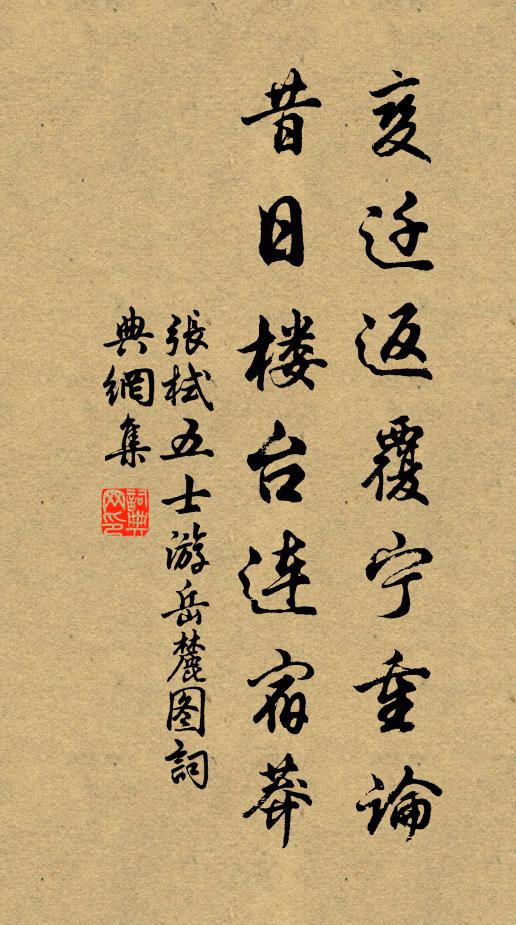 变迁返覆宁重论
昔日楼台连宿莽
張栻五士游岳麓图詞
典網集
詞典网印